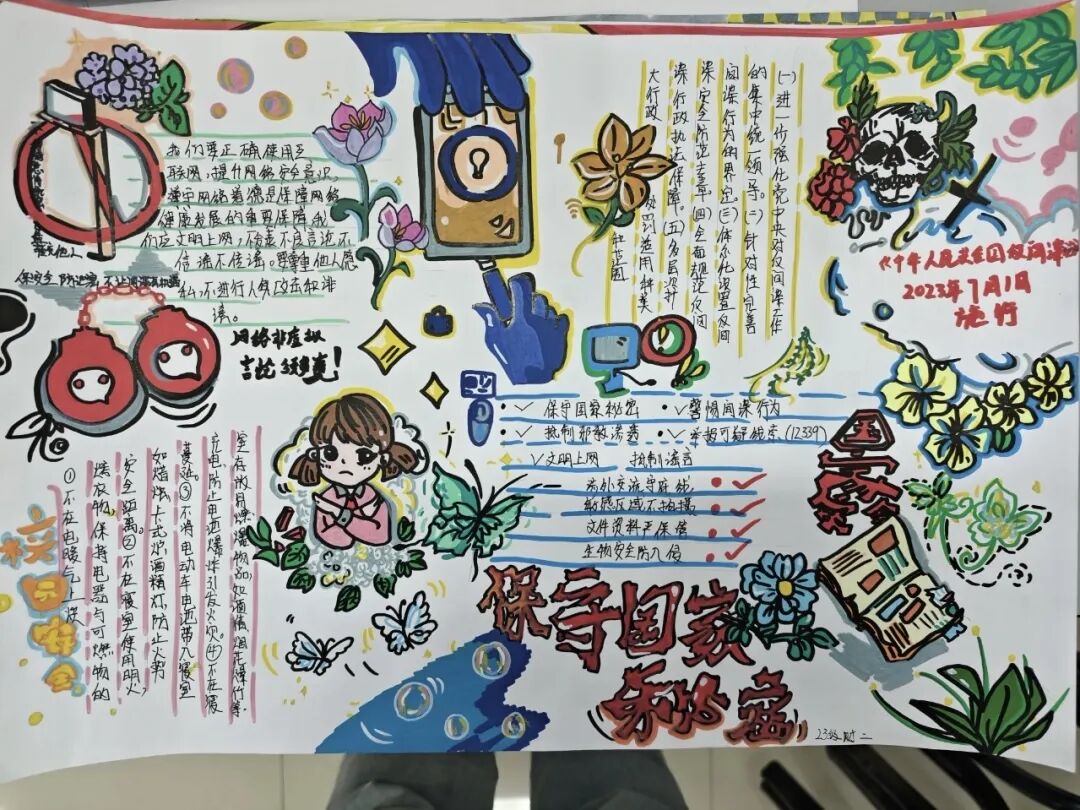 我们要正确使用互
联网,提升网络安全意识
遵守网络道德是保障网络
健康发展的重要保障,我
们应文明上网,不发表不良言论不
信谣不传谣,尊重他人隐
私,不进行人身攻击和诽
谤。
网络非虚拟
言论须谨慎!
(一)进一步强化党中央对反间谍工作
的集中统一领导。(二)针对性完善
间谍行为的界定。(三)体系化设置反间
谍安全防范主章(四)全面规范反间
谍行政执法保障。(五)多层次扩
大行政
处罚适用种类
《中华人民共和国反间谍法》
2023年7月1日
施行
✓ 保守国家秘密
✓警惕间谍行为
✓ 抵制邪教渗透
✓ 举报可疑线索(12339)
✓文明上网 抵制谣言
涉外交流守底线,
敏感区域不拍摄
文件资料严保密
生物安全防入侵
校园安全
①不在电暖气上烘
烤衣物,保持电器与可燃物的
安全距离。②不在寝室使用明火,
如蜡烛、卡式炉、酒精灯,防止火势
蔓延。③不将电动车电池带入寝室
充电,防止电池爆炸引发火灾。④不在寝
室存放易燃易爆物品,如酒精、烟花爆竹等。
保守国家
秘密
23级财二